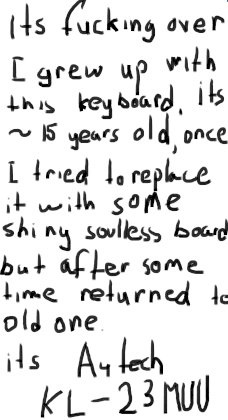 its fucking over
I grew up with
this keyboard, its
~ 15 years old, once
I tried to replace
it with some
shiny soulless board
but after some
time returned to
old one.
its A4tech
KL-23MUU